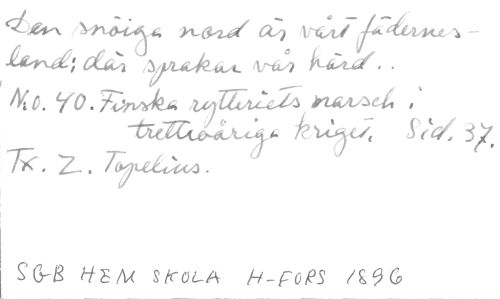 Den snöiga nord är vårt fädernes-
land; där sprakar vår härd..
N:o. 40. Finska rytteriets marsch i
trettioåriga kriget. Sid. 37.
Tx. Z. Topelius.
SGB HEM SKOLA H-FORS 1896